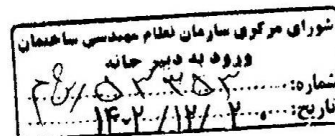 شورای مرکزی سازمان نظام مهندسی ساختمان
ورود به دبیرخانه
شماره:
تاریخ: ۱۴۰۲/۱۲/۲۰